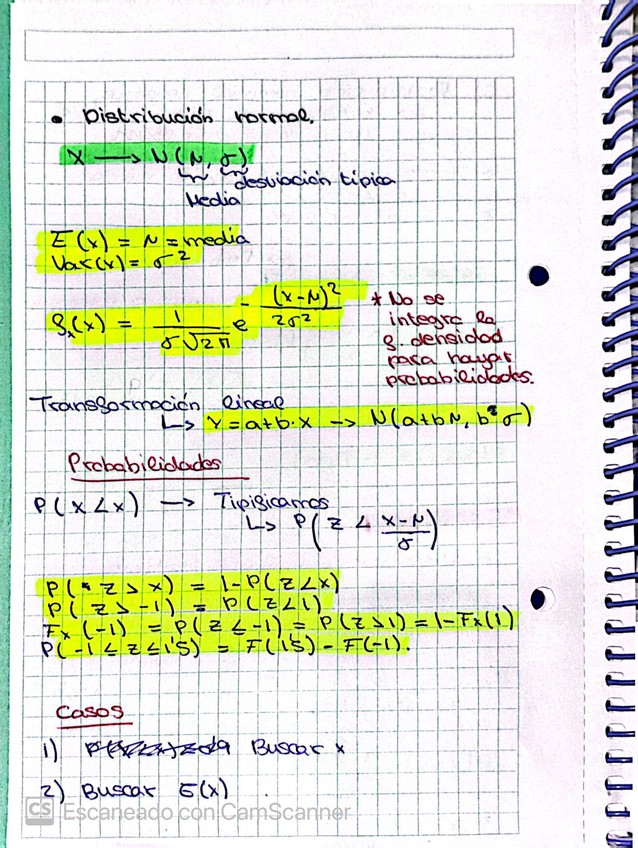 • Distribución normal.
X → N(μ, σ)
desviación típica
Media
E(x) = μ = media
Var(x) = σ²
fₓ(x) = 1/(σ√2π) e^(-(x-μ)²/2σ²)
* No se
integra la
f. densidad
para hayar
probabilidades.
Transformación lineal
↳ Y = a+b·X → N(a+bμ, b² σ)
Probabilidades
P(X<x) → Tipificamos
↳ P(Z < (x-μ)/σ)
P(Z > x) = 1-P(Z<x)
P(Z > -1) = P(Z<1)
Fₓ(-1) = P(Z ≤ -1) = P(Z>1) = 1-Fₓ(1)
P(-1 ≤ Z ≤ 1'5) = F(1'5) - F(-1).
Casos
1) Buscar x
2) Buscar E(x)
CS Escaneado con CamScanner